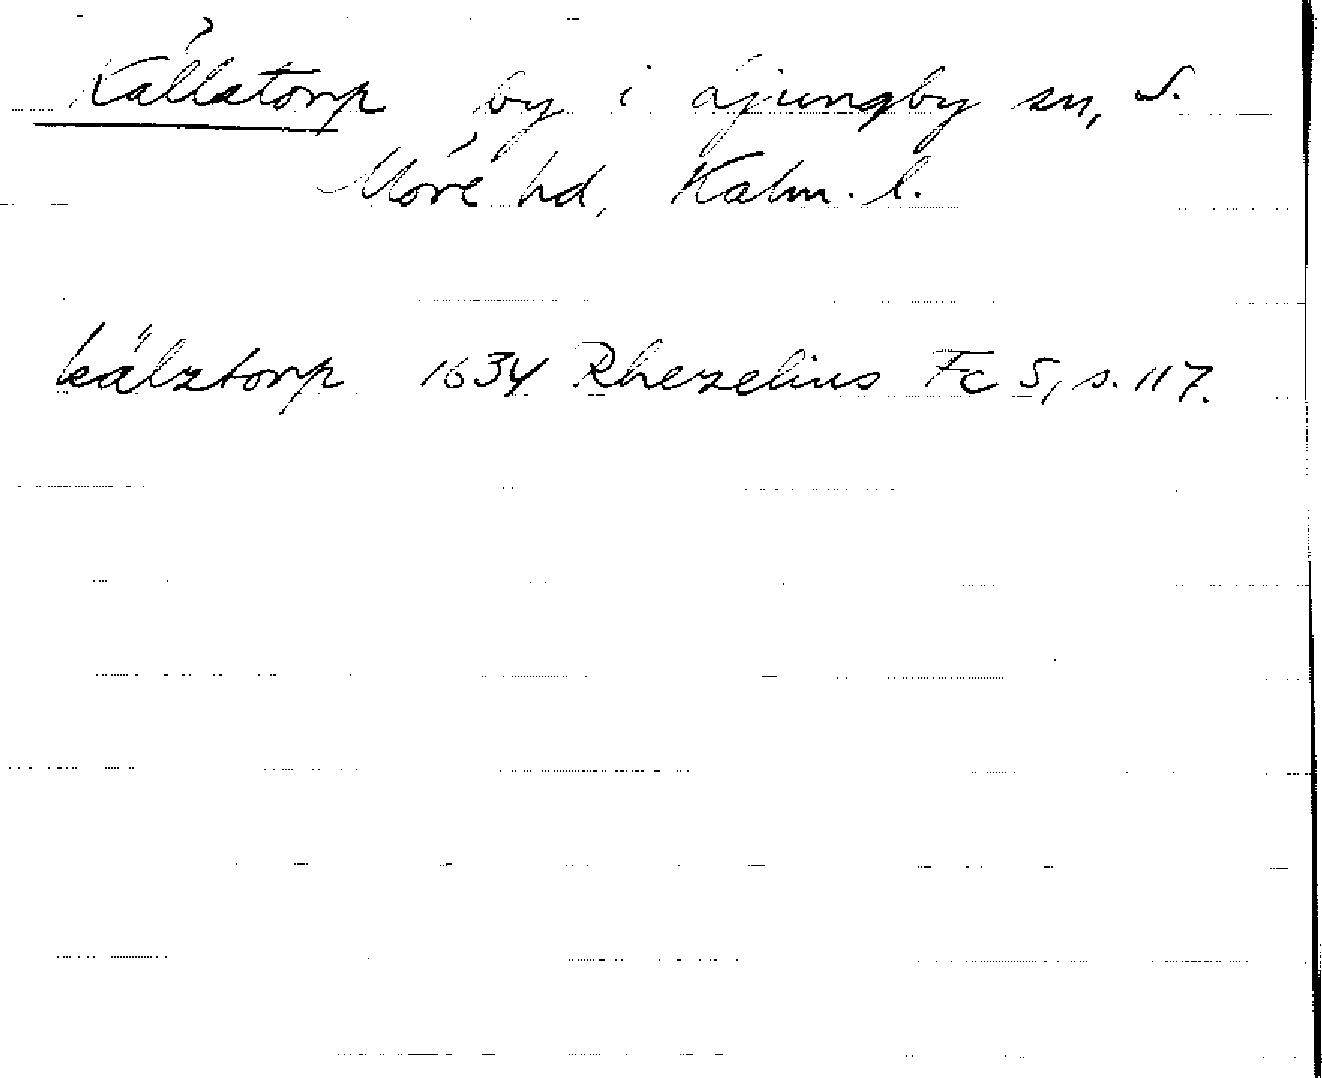 Källatorp by i Ljungby sn, S.
Möre hd, Kalm. l.
källztorp 1634 Rhezelius Fc 5, s. 117.